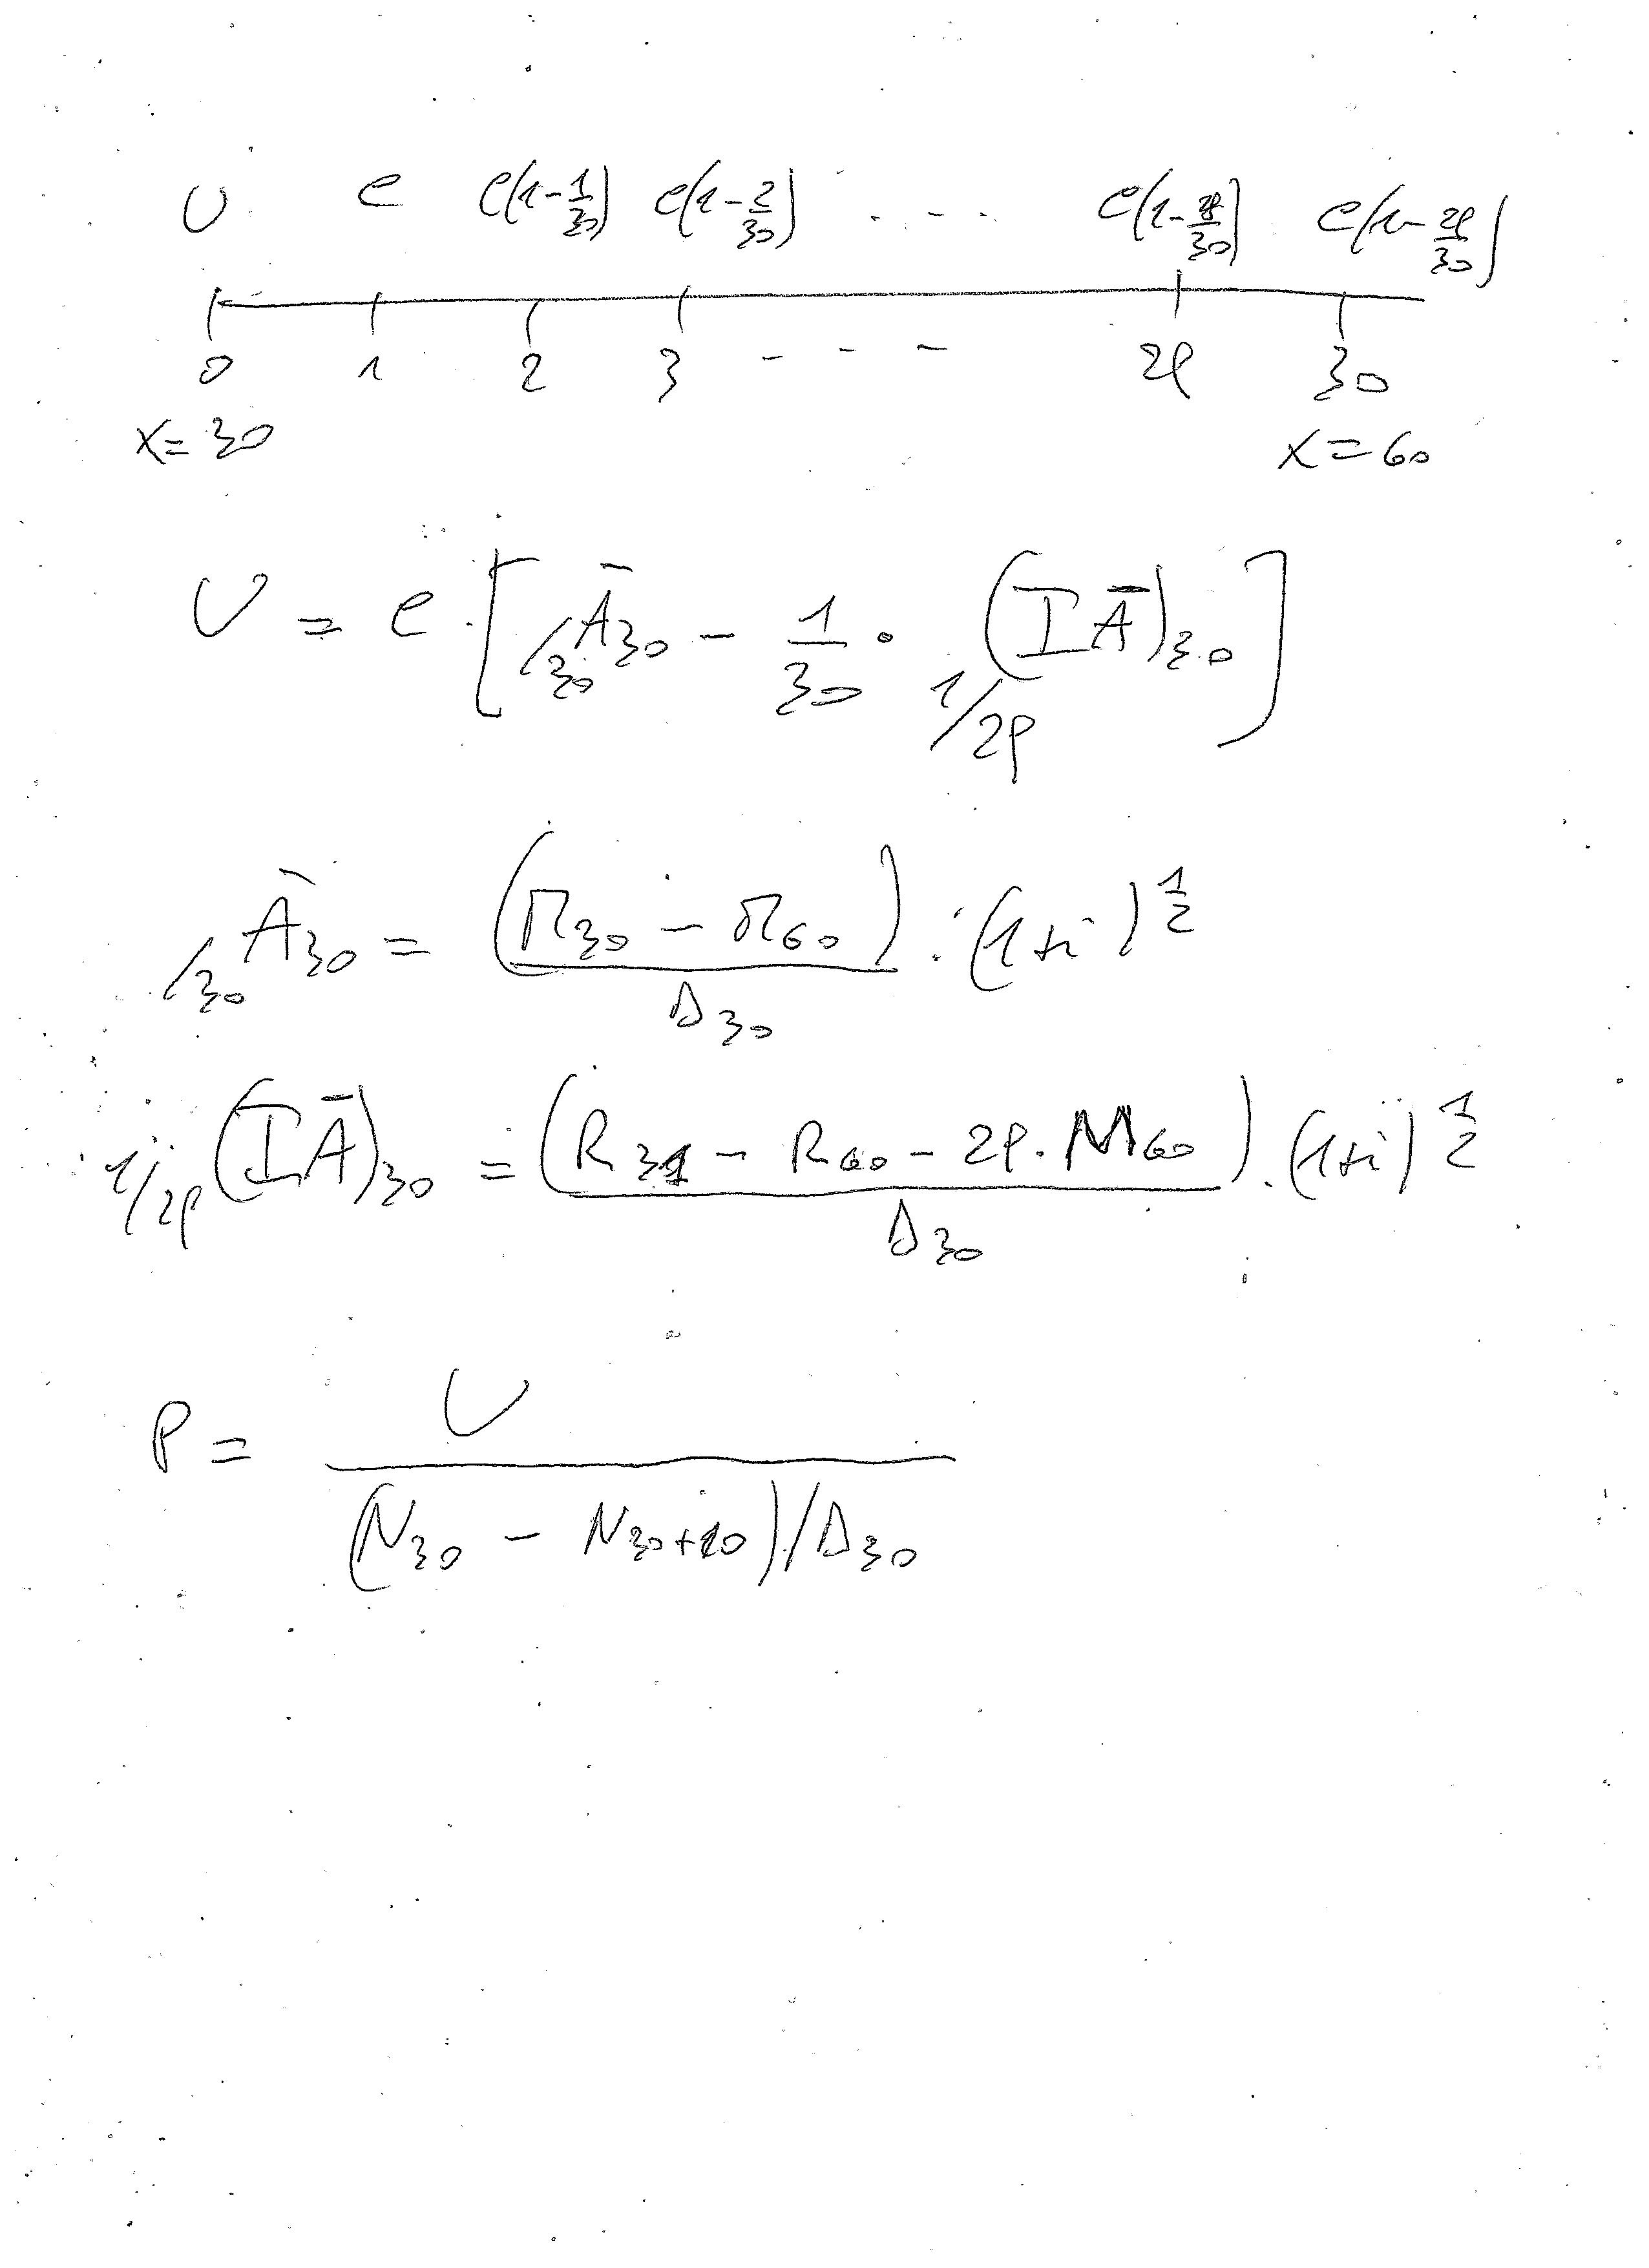 U e e(1-1/30) e(1-2/30) . - - . e(1-28/30) e(1-29/30)
0 1 2 3 - - - 29 30
x=30 x=60
U = e . [ /30 Ā30 - 1/30 . 1/29 (IĀ)30 ]
/30 Ā30 = (M30 - M60)/D30 . (1+i)^1/2
1/29 (IĀ)30 = (R31 - R60 - 29. M60)/D30 . (1+i)^1/2
P = U
(N30 - N30+20)/D30